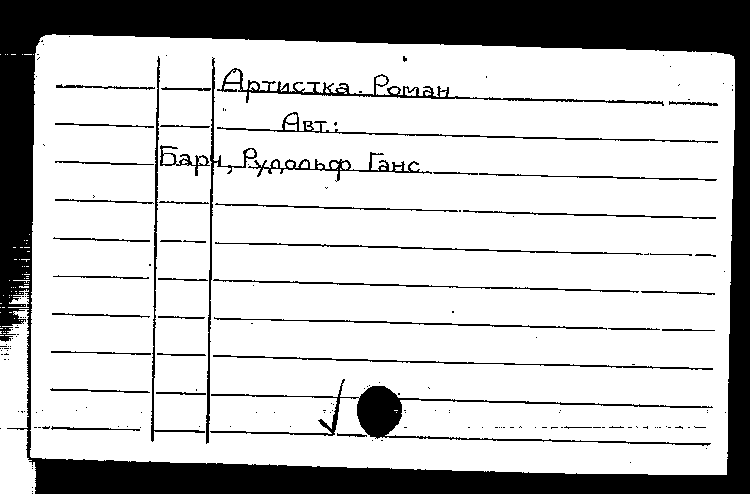 Артистка. Роман
Авт.:
Барч, Рудольф Ганс